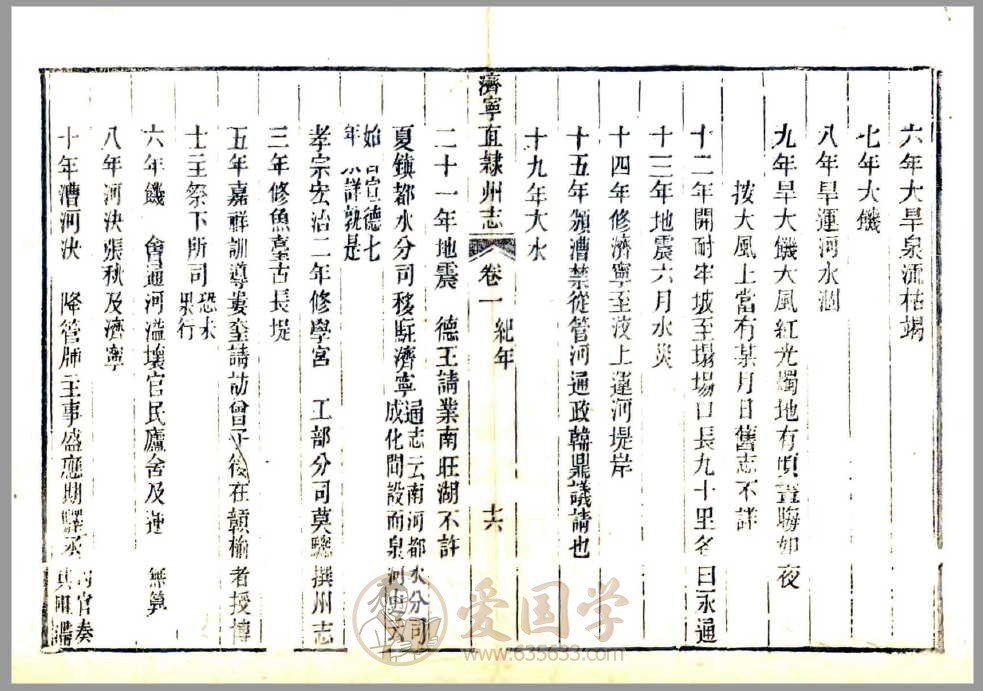 六年大旱泉流枯竭
七年大饑
八年旱運河水涸
九年旱大饑大風紅光燭地有頃晝晦如夜
按大風上當有某月日舊志不詳
十二年開耐牢坡至塌場口長九十里名曰永通
十三年地震六月水災
十四年修濟寧至汶上運河堤岸
十五年頒漕禁從管河通政韓鼎議請也
十九年大水
濟寧直隸州志
卷一
紀年
十六
二十一年地震 德王請業南旺湖不許
夏鎮都水分司移駐濟寧
通志云南河都水分司
成化間設而泉河史云
始 宣德七
年 詳孰是
孝宗宏治二年修學宮 工部分司莫驄撰州志
三年修魚臺古長堤
五年嘉祥訓導婁奎請訪曾子後在贛榆者授博
士主祭下所司
恐未
果行
六年饑 會通河溢壞官民廬舍及運 無算
八年河決張秋及濟寧
十年漕河決 降管閘主事盛應期驛丞
官奏
愛国学
www.635633.com